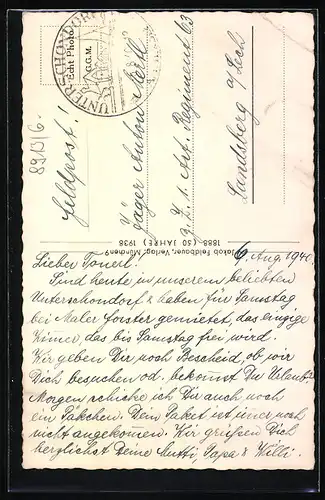 89136.
UNTERSCHONDORF
Echt Photo
G.G.M.
Feldpost!
Jäger Anton
z. Zt. Art. Regiment 63
Landsberg a/Lech
Jakob Feldbauer, Verlag, München 9
1888 (50 JAHRE) 1938
6. Aug. 1940.
Lieber Tonerl!
Sind heute in unserem beliebten
Unterschondorf & haben für Samstag
bei Maler Forster gemietet, das einzige
Zimer, das bis Samstag frei wird.
Wir geben Dir noch Bescheid, ob wir
Dich besuchen od. bekomst Du Urlaub?
Morgen schicke ich Du auch noch
ein Päkchen. Dein Paket ist imer noch
nicht angekomen. Wir grüßen Dich
herzlichst Deine Mutti, Papa & Willi.